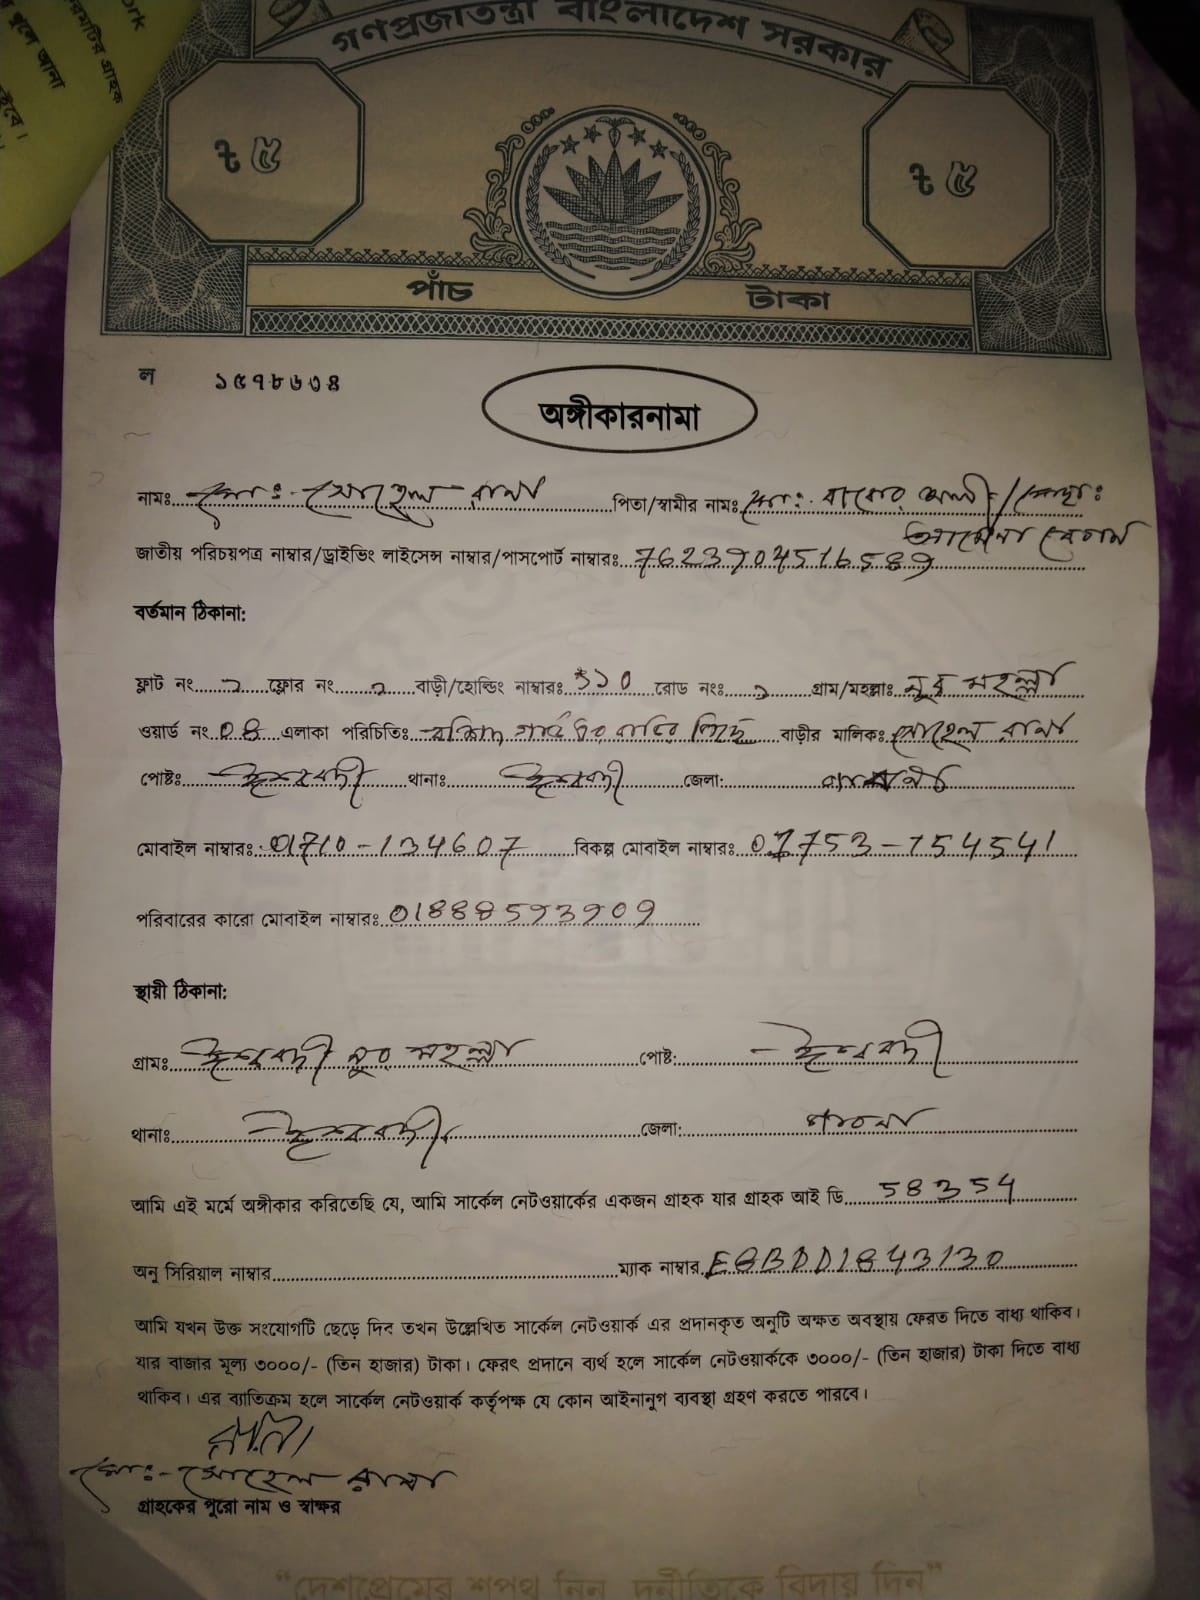 গণপ্রজাতন্ত্রী বাংলাদেশ সরকার
৳ ৫ ৳ ৫
পাঁচ টাকা
ল ১৫৭৮৬৩৪
অঙ্গীকারনামা
নামঃ মোঃ- সোহেল রানা পিতা/স্বামীর নামঃ মোঃ আলী/মোছাঃ
জাতীয় পরিচয়পত্র নাম্বার/ড্রাইভিং লাইসেন্স নাম্বার/পাসপোর্ট নাম্বারঃ 7623904516589
বর্তমান ঠিকানা:
ফ্লাট নং ফ্লোর নং বাড়ী/হোল্ডিং নাম্বারঃ রোড নংঃ গ্রাম/মহল্লাঃ নুর মহল্লা
ওয়ার্ড নং 08 এলাকা পরিচিতিঃ বাড়ীর মালিকঃ সোহেল রানা
পোষ্টঃ ঈশ্বরদী থানাঃ ঈশ্বরদী জেলা: পাবনা
মোবাইল নাম্বারঃ 01710-134607 বিকল্প মোবাইল নাম্বারঃ 01753-154541
পরিবারের কারো মোবাইল নাম্বারঃ 01888593909
স্থায়ী ঠিকানা:
গ্রামঃ ঈশ্বরদী নুর মহল্লা পোষ্ট: ঈশ্বরদী
থানাঃ ঈশ্বরদী জেলা: পাবনা
আমি এই মর্মে অঙ্গীকার করিতেছি যে, আমি সার্কেল নেটওয়ার্কের একজন গ্রাহক যার গ্রাহক আই ডি 58354
অনু সিরিয়াল নাম্বার ম্যাক নাম্বার E8BDD1843130
আমি যখন উক্ত সংযোগটি ছেড়ে দিব তখন উল্লেখিত সার্কেল নেটওয়ার্ক এর প্রদানকৃত অনুটি অক্ষত অবস্থায় ফেরত দিতে বাধ্য থাকিব।
যার বাজার মূল্য ৩০০০/- (তিন হাজার) টাকা। ফেরৎ প্রদানে ব্যর্থ হলে সার্কেল নেটওয়ার্ককে ৩০০০/- (তিন হাজার) টাকা দিতে বাধ্য
থাকিব। এর ব্যতিক্রম হলে সার্কেল নেটওয়ার্ক কর্তৃপক্ষ যে কোন আইনানুগ ব্যবস্থা গ্রহণ করতে পারবে।
মোঃ- সোহেল রানা
গ্রাহকের পুরো নাম ও স্বাক্ষর
“দেশপ্রেমের শপথ নিন, দুর্নীতিকে বিদায় দিন”